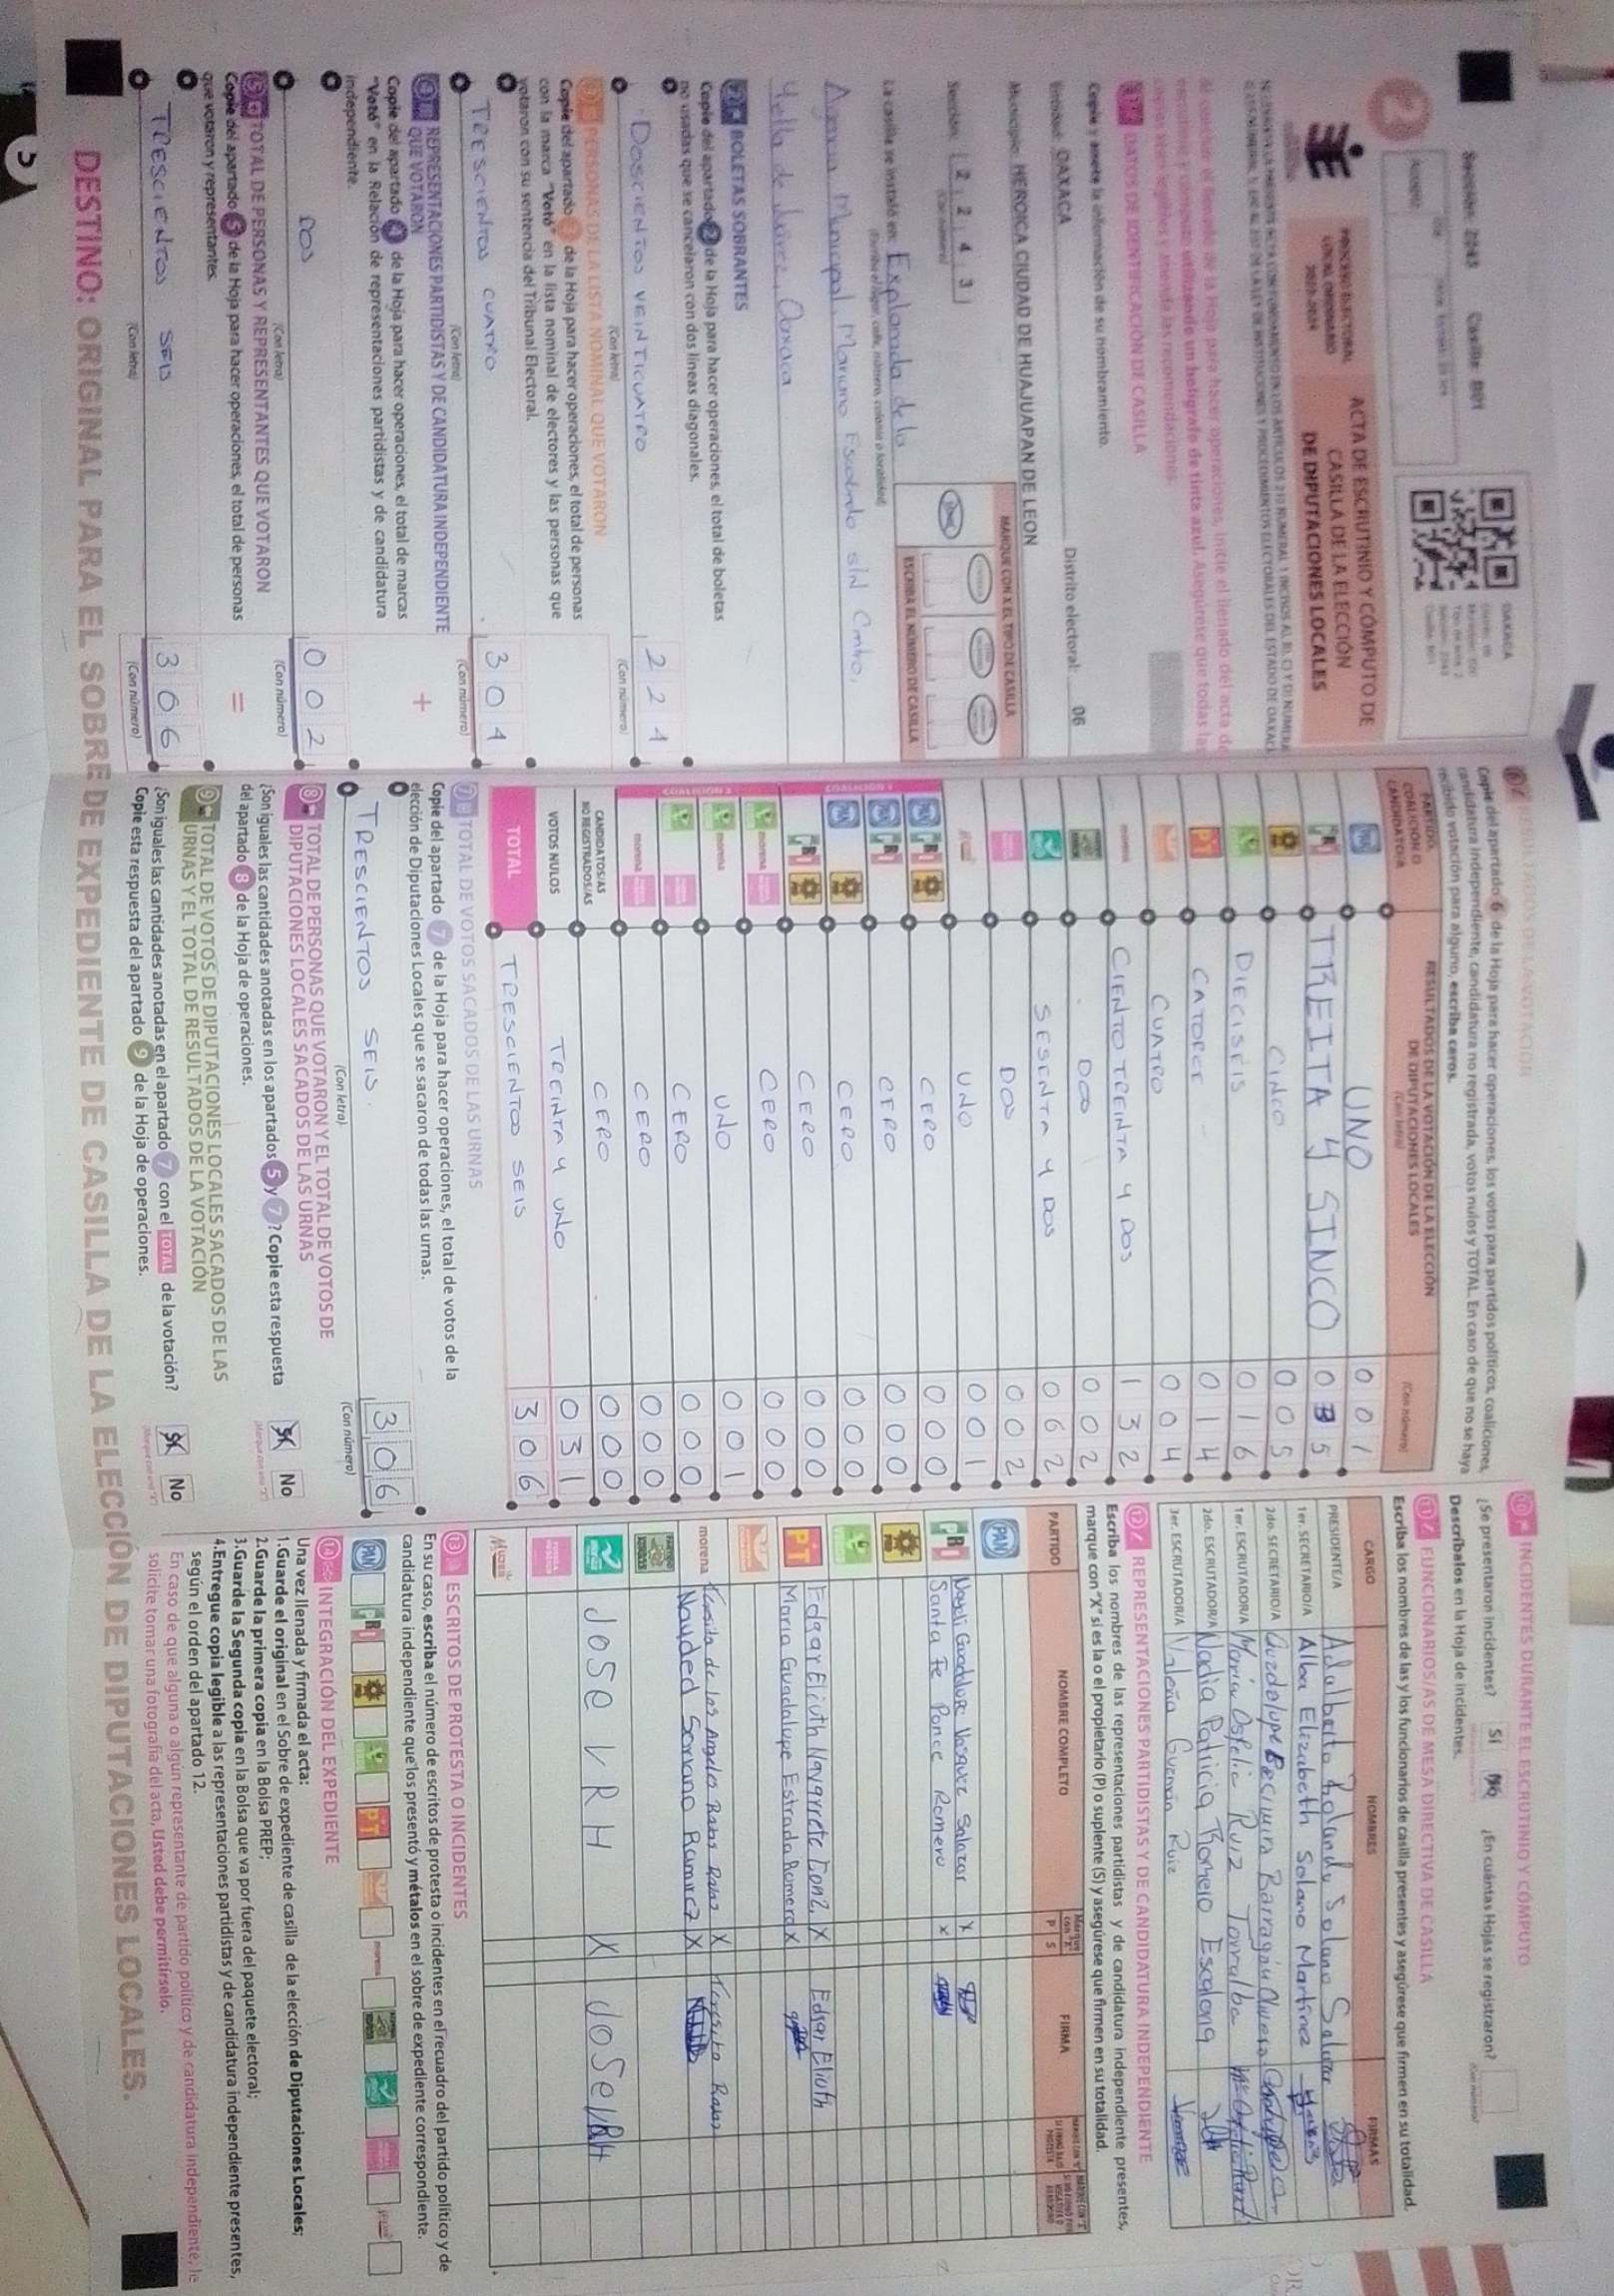 Sección: 2243 Casilla: B01
PROCESO ELECTORAL
LOCAL ORDINARIO
2023-2024
ACTA DE ESCRUTINIO Y CÓMPUTO DE
CASILLA DE LA ELECCIÓN
DE DIPUTACIONES LOCALES
OAXACA
Al concluir el llenado de la Hoja para hacer operaciones, inicie el llenado del acta de
utilizando un bolígrafo de tinta azul. Asegúrese que todas las
DATOS DE IDENTIFICACIÓN DE CASILLA
Copie y anote la información de su nombramiento.
Entidad: OAXACA Distrito electoral: 06
Municipio: HEROICA CIUDAD DE HUAJUAPAN DE LEON
Sección: 2 2 4 3
(Con número)
MARQUE CON X EL TIPO DE CASILLA
ESCRIBA EL NÚMERO DE CASILLA
La casilla se instaló en: Explanada de la
(Escriba el lugar, calle, número, colonia o localidad)
Agencia Municipal, Mariano Escobedo sin Centro,
Yetla de Juárez, Oaxaca
2 BOLETAS SOBRANTES
Copie del apartado 2 de la Hoja para hacer operaciones, el total de boletas
no usadas que se cancelaron con dos líneas diagonales.
DOSCIENTOS VEINTICUATRO 224
(Con letra) (Con número)
3 PERSONAS DE LA LISTA NOMINAL QUE VOTARON
Copie del apartado 3 de la Hoja para hacer operaciones, el total de personas
con la marca "Votó" en la lista nominal de electores y las personas que
votaron con su sentencia del Tribunal Electoral.
TRESCIENTOS CUATRO 304
(Con letra) (Con número)
4 REPRESENTACIONES PARTIDISTAS Y DE CANDIDATURA INDEPENDIENTE
QUE VOTARON
+
Copie del apartado 4 de la Hoja para hacer operaciones, el total de marcas
"Votó" en la Relación de representaciones partidistas y de candidatura
independiente.
DOS 002
(Con letra) (Con número)
5 TOTAL DE PERSONAS Y REPRESENTANTES QUE VOTARON
=
Copie del apartado 5 de la Hoja para hacer operaciones, el total de personas
que votaron y representantes.
TRESCIENTOS SEIS 306
(Con letra) (Con número)
6 RESULTADOS DE LA VOTACIÓN
Copie del apartado 6 de la Hoja para hacer operaciones, los votos para partidos políticos, coaliciones,
candidatura independiente, candidatura no registrada, votos nulos y TOTAL. En caso de que no se haya
recibido votación para alguno, escriba ceros.
PARTIDO,
COALICIÓN O
CANDIDATO/A
RESULTADOS DE LA VOTACIÓN DE LA ELECCIÓN
DE DIPUTACIONES LOCALES
(Con letra) (Con número)
PAN UNO 001
PRI TREITA Y SINCO 035
PRD CINCO 005
DIECISEIS 016
PT CATORCE 014
CUATRO 004
morena CIENTO TREINTA Y DOS 132
DOS 002
SESENTA Y DOS 062
DOS 002
UNO 001
COALICIÓN 1
PAN PRI PRD CERO 000
PAN PRI CERO 000
PAN PRD CERO 000
PRI PRD CERO 000
COALICIÓN 2
morena CERO 000
morena UNO 001
CERO 000
morena CERO 000
CANDIDATOS/AS
NO REGISTRADOS/AS CERO 000
VOTOS NULOS TREINTA Y UNO 031
TOTAL TRESCIENTOS SEIS 306
7 TOTAL DE VOTOS SACADOS DE LAS URNAS
Copie del apartado 7 de la Hoja para hacer operaciones, el total de votos de la
elección de Diputaciones Locales que se sacaron de todas las urnas.
TRESCIENTOS SEIS. 306
(Con letra) (Con número)
8 TOTAL DE PERSONAS QUE VOTARON Y EL TOTAL DE VOTOS DE
DIPUTACIONES LOCALES SACADOS DE LAS URNAS
¿Son iguales las cantidades anotadas en los apartados 5 y 7? Copie esta respuesta
del apartado 8 de la Hoja de operaciones.
Sí No
9 TOTAL DE VOTOS DE DIPUTACIONES LOCALES SACADOS DE LAS
URNAS Y EL TOTAL DE RESULTADOS DE LA VOTACIÓN
¿Son iguales las cantidades anotadas en el apartado 7 con el TOTAL de la votación?
Copie esta respuesta del apartado 9 de la Hoja de operaciones.
Sí No
10 INCIDENTES DURANTE EL ESCRUTINIO Y CÓMPUTO
¿Se presentaron incidentes? Sí No ¿En cuántas Hojas se registraron?
Descríbalos en la Hoja de incidentes.
11 FUNCIONARIOS/AS DE MESA DIRECTIVA DE CASILLA
Escriba los nombres de las y los funcionarios de casilla presentes y asegúrese que firmen en su totalidad.
CARGO NOMBRES FIRMAS
PRESIDENTE/A Adalberto Rolando Solano
1er. SECRETARIO/A Alba Elizabeth Solano Martínez
2do. SECRETARIO/A Guadalupe Barragán
1er. ESCRUTADOR/A María Ofelia Ruiz Torralba
2do. ESCRUTADOR/A Nadia Patricia Romero Escalona
3er. ESCRUTADOR/A Valeria Guzmán Ruiz
12 REPRESENTACIONES PARTIDISTAS Y DE CANDIDATURA INDEPENDIENTE
Escriba los nombres de las representaciones partidistas y de candidatura independiente presentes,
marque con "X" si es la o el propietario (P) o suplente (S) y asegúrese que firmen en su totalidad.
PARTIDO NOMBRE COMPLETO Marque con "X" P S FIRMA
PAN
PRI Nayeli Guadalupe Vasquez Salazar X
Santa Fe Ponce Romero X
PRD
PT Edgar Elioth Navarrete X Edgar Elioth
Maria Guadalupe Estrada Romero X
morena de los Angeles X
Nauded Serrano Ramirez X
JOSE VRH X JOSEVRH
13 ESCRITOS DE PROTESTA O INCIDENTES
En su caso, escriba el número de escritos de protesta o incidentes en el recuadro del partido político y de
candidatura independiente que los presentó y métalos en el sobre de expediente correspondiente.
PAN PRI PRD PT morena
14 INTEGRACIÓN DEL EXPEDIENTE
Una vez llenada y firmada el acta:
1.Guarde el original en el Sobre de expediente de casilla de la elección de Diputaciones Locales;
2.Guarde la primera copia en la Bolsa PREP;
3.Guarde la Segunda copia en la Bolsa que va por fuera del paquete electoral;
4.Entregue copia legible a las representaciones partidistas y de candidatura independiente presentes,
según el orden del apartado 12.
En caso de que alguna o algún representante de partido político y de candidatura independiente, le
solicite tomar una fotografía del acta, Usted debe permitírselo.
DESTINO: ORIGINAL PARA EL SOBRE DE EXPEDIENTE DE CASILLA DE LA ELECCIÓN DE DIPUTACIONES LOCALES.